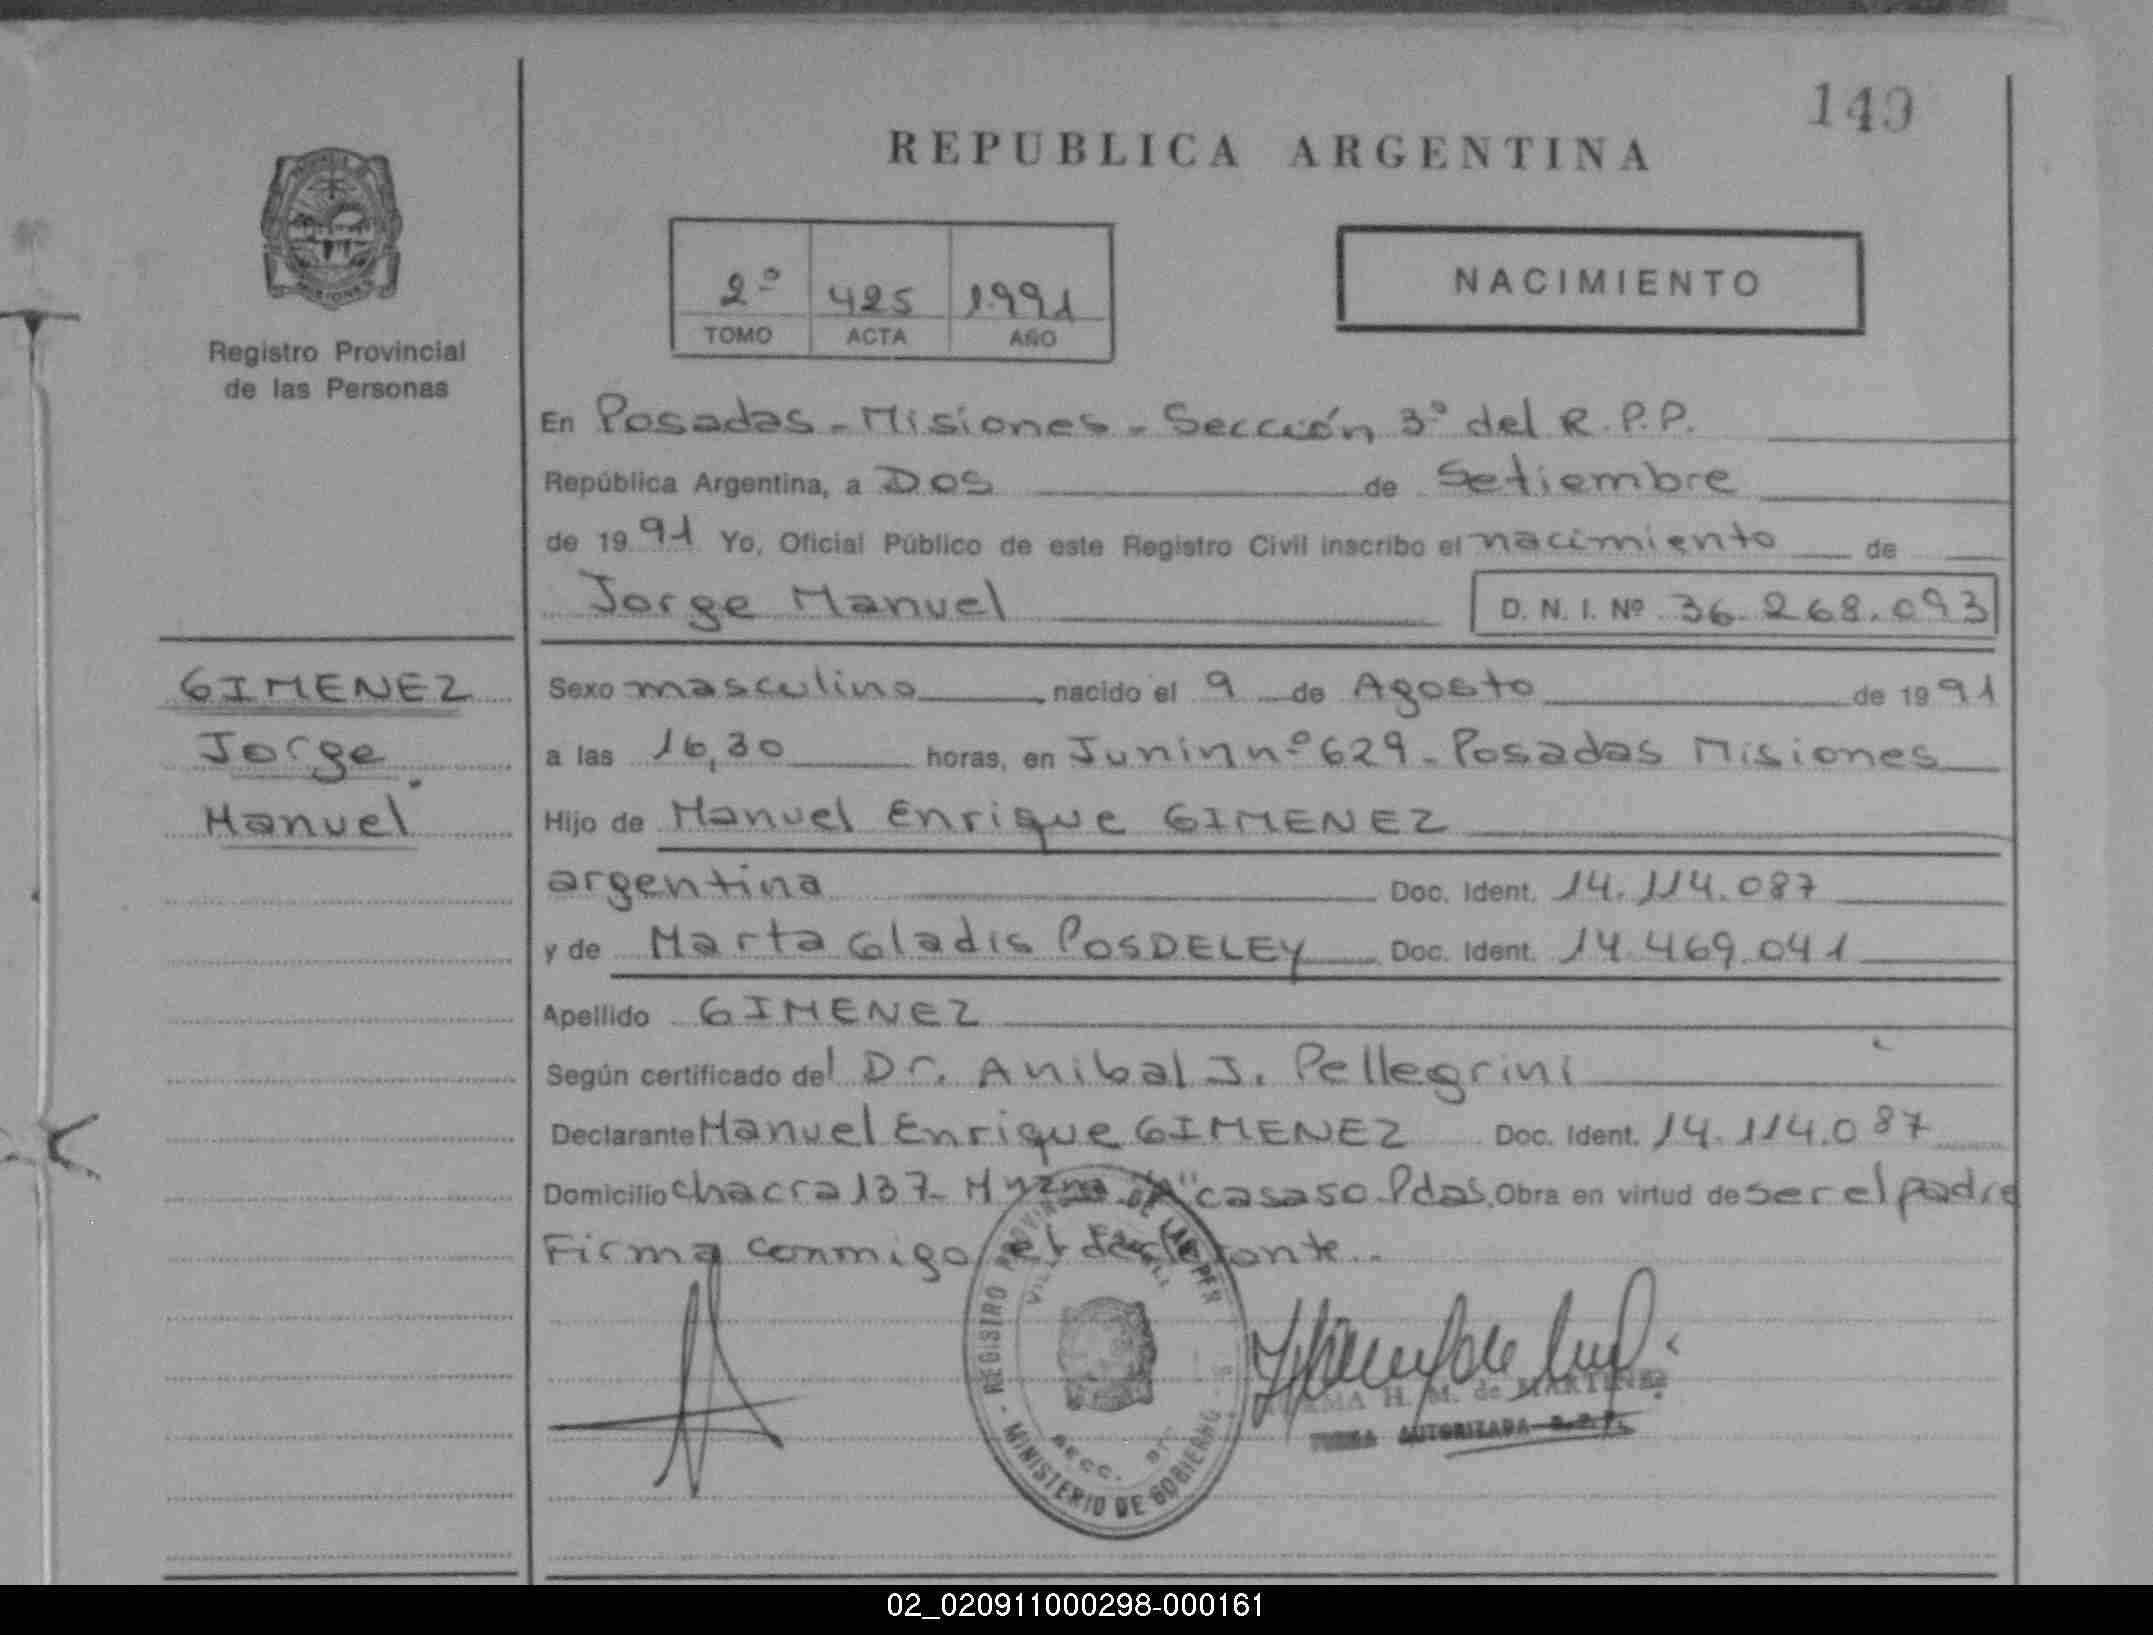 149
REPUBLICA ARGENTINA
2º 425 1991
TOMO ACTA AÑO
NACIMIENTO
Registro Provincial
de las Personas
En Posadas - Misiones - Sección 3º del R.P.P.
República Argentina, a Dos de Setiembre
de 1991 Yo, Oficial Público de este Registro Civil inscribo el nacimiento de
Jorge Manuel D. N. I. Nº 36.268.093
GIMENEZ
Jorge
Manuel
Sexo masculino nacido el 9 de Agosto de 1991
a las 16,30 horas, en Junin nº 629 - Posadas Misiones
Hijo de Manuel Enrique GIMENEZ
argentina Doc. Ident. 14.114.087
y de Marta Gladis POSDELEY Doc. Ident. 14.469.041
Apellido GIMENEZ
Según certificado del Dr. Anibal J. Pellegrini
Declarante Manuel Enrique GIMENEZ Doc. Ident. 14.114.087
Domicilio chacra 137- casa 50 Pdas. Obra en virtud de ser el padre
Firma conmigo el declarante..
REGISTRO PROVIN DE LAS PER
MINISTERIO DE GOBIERNO
SECC.
H. M. de MARTINEZ
FIRMA AUTORIZADA R.P.P.
02_020911000298-000161